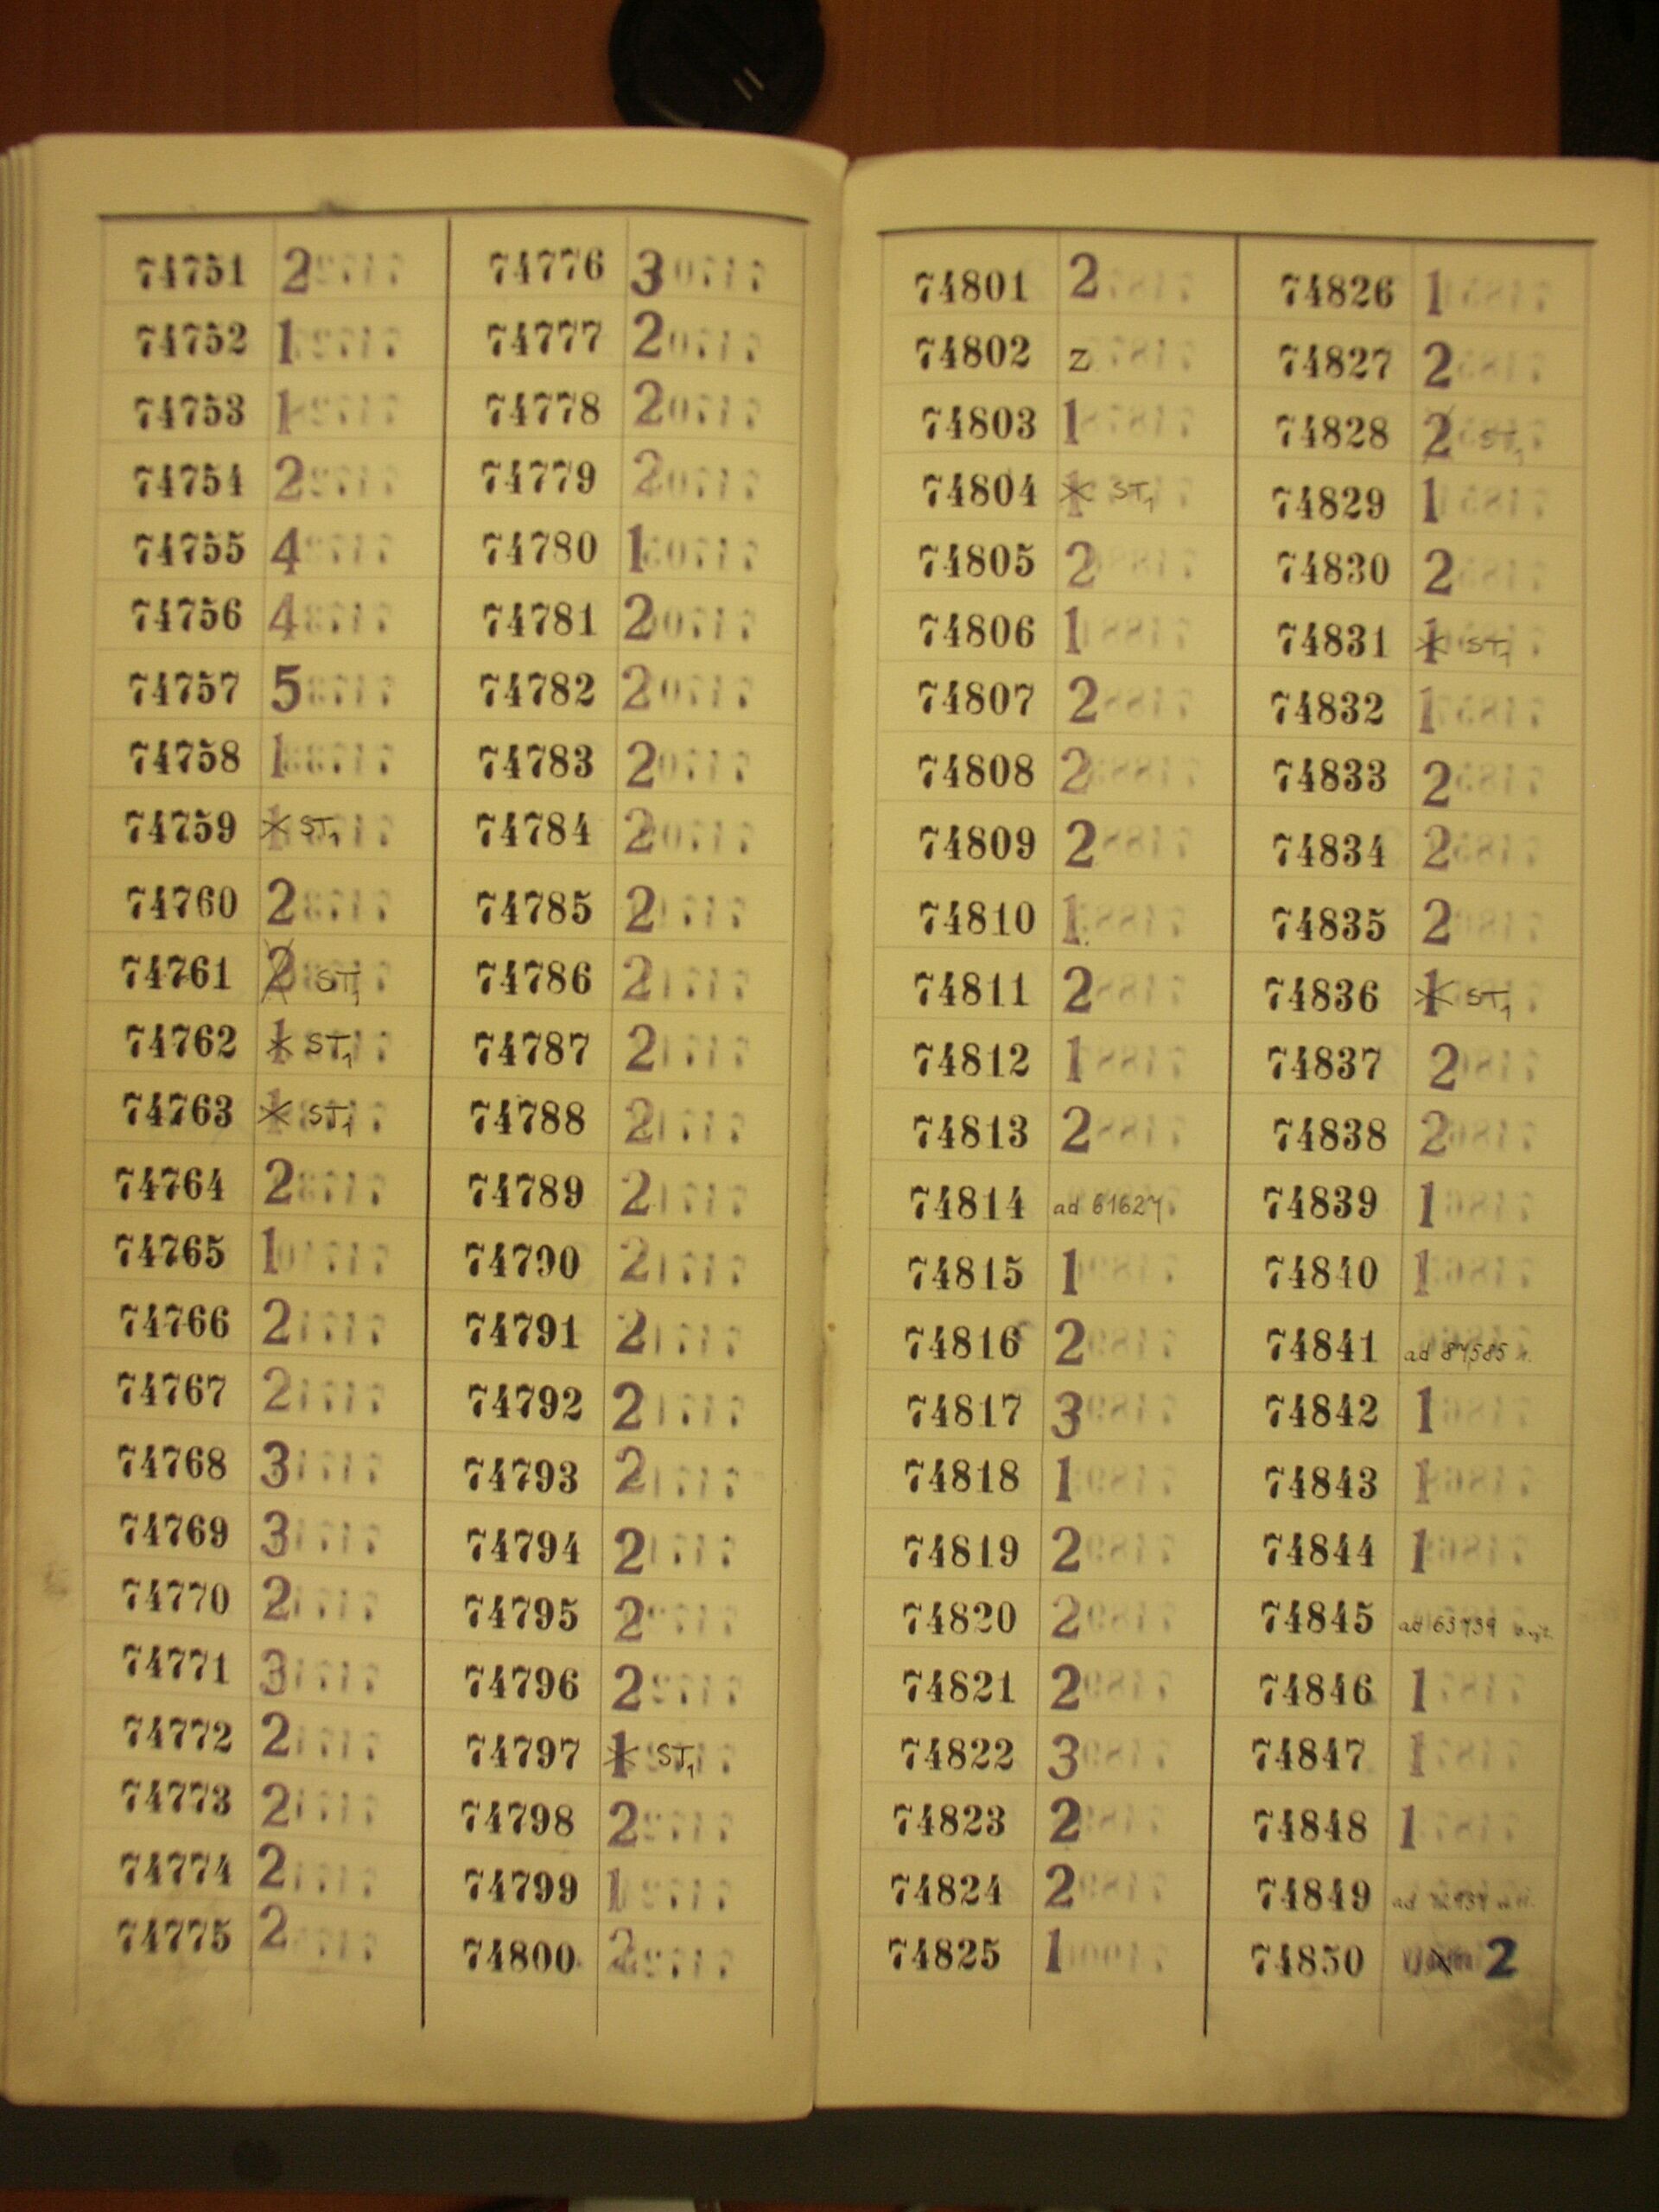 74751 2
74752 1
74753 1
74754 2
74755 4
74756 4
74757 5
74758 1
74759 1 ST1
74760 2
74761 2 ST1
74762 1 ST1
74763 1 ST1
74764 2
74765 1
74766 2
74767 2
74768 3
74769 3
74770 2
74771 3
74772 2
74773 2
74774 2
74775 2
74776 3
74777 2
74778 2
74779 2
74780 1
74781 2
74782 2
74783 2
74784 2
74785 2
74786 2
74787 2
74788 2
74789 2
74790 2
74791 2
74792 2
74793 2
74794 2
74795 2
74796 2
74797 1 ST1
74798 2
74799 1
74800 2
74801 2
74802 z
74803 1
74804 1 ST1
74805 2
74806 1
74807 2
74808 2
74809 2
74810 1
74811 2
74812 1
74813 2
74814 ad 61627
74815 1
74816 2
74817 3
74818 1
74819 2
74820 2
74821 2
74822 3
74823 2
74824 2
74825 1
74826 1
74827 2
74828 2 ST1
74829 1
74830 2
74831 1 ST1
74832 1
74833 2
74834 2
74835 2
74836 1 ST1
74837 2
74838 2
74839 1
74840 1
74841 ad 87585
74842 1
74843 1
74844 1
74845 ad
74846 1
74847 1
74848 1
74849 ad
74850 2